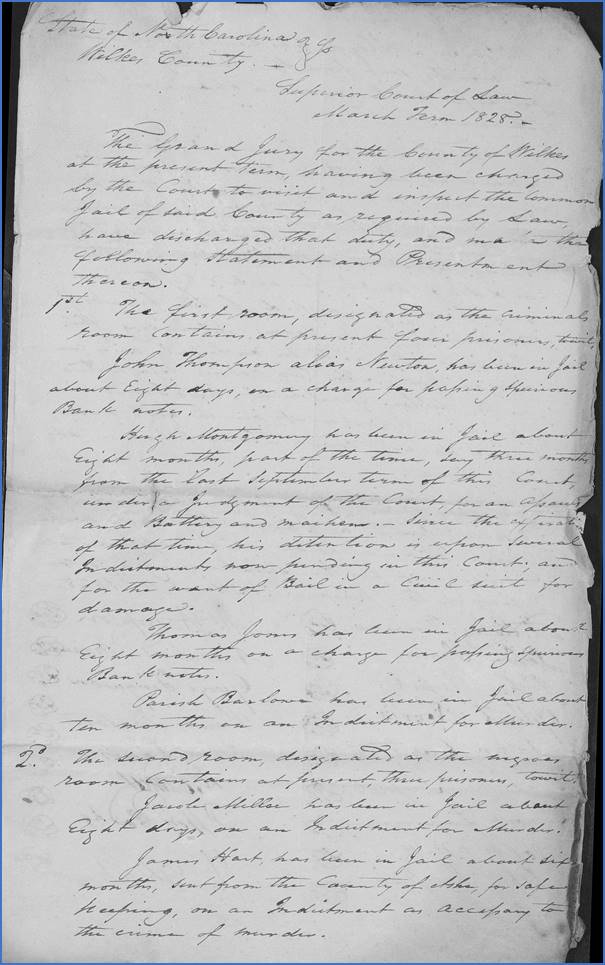 State of North Carolina } Ss
Wilkes County. -
Superior Court of Law
March Term 1828. -
The Grand Jury for the County of Wilkes
at the present Term, having been charged
by the Court to visit and inspect the Common
Jail of said County as required by Law,
have discharged that duty, and ma the
following Statement and Presentment
thereon.
1st The first room, designated as the criminals
room Contains at present four prisoners, towit,
John Thompson alias Newton, has been in Jail
about Eight days, on a charge for passing spurious
Bank notes.
Hugh Montgomery has been in Jail about
Eight months, part of the time, say three months
from the last September term of this Court,
under a Judgment of the Court, for an Assault
and Battery and mayhem. - Since the expirati
of that time, his detention is upon several
Indictments now pending in this Court; and
for the want of Bail in a Civil suit for
damage.
Thomas Jones has been in Jail about
Eight months on a charge for passing spurious
Bank notes.
Parish Barlowe has been in Jail about
ten months on an Indictment for Murder.
2d. The second room, designated as the negroes
room Contains at present, three prisoners, towit.
Jacob Miller has been in Jail about
Eight days, on an Indictment for Murder.
James Hart, has been in Jail about six
months, sent from the County of Ashe, for safe
keeping, on an Indictment as accessary to
the crime of murder.